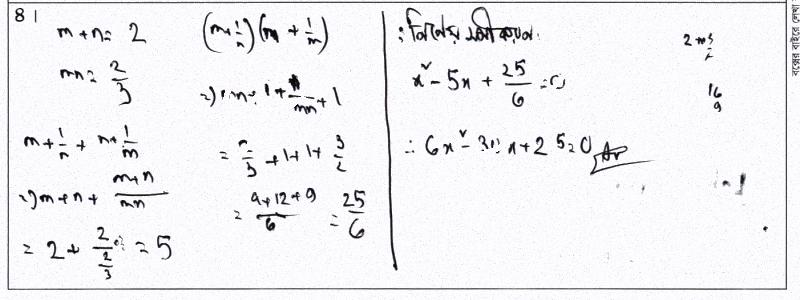 8|
m + n = 2
mn = 2/3
m + 1/n + n + 1/m
=> m + n + (m+n)/mn
= 2 + 2/(2/3) = 5
(m + 1/n)(n + 1/m)
=> mn + 1 + 1/mn + 1
= 2/3 + 1 + 1 + 3/2
= (4 + 12 + 9)/6 = 25/6
∴ নির্ণেয় সমীকরণ
x² - 5x + 25/6 = 0
∴ 6x² - 30x + 25 = 0
16
9
বক্সের বাইরে লেখা